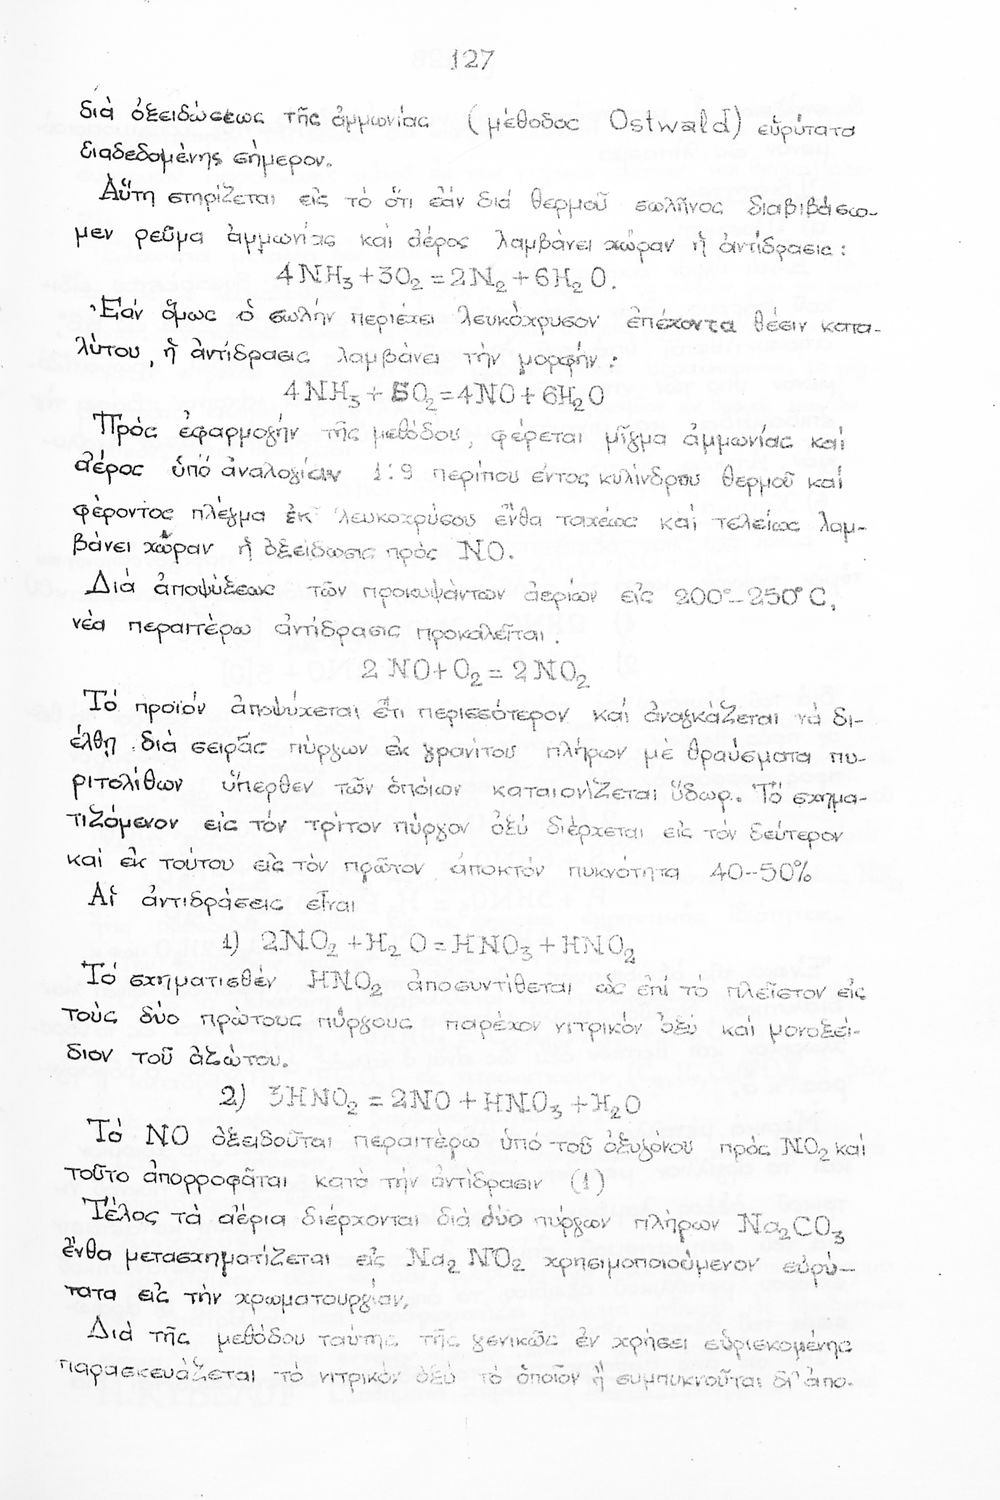 127
διὰ ὀξειδώσεως τῆς ἀμμωνίας (μέθοδος Ostwald) εὐρύτατα
διαδεδομένης σήμερον.
Αὕτη στηρίζεται εἰς τὸ ὅτι ἐάν διά θερμοῦ σωλῆνος διαβιβάσω-
μεν ρεῦμα ἀμμωνίας καὶ ἀέρος λαμβάνει χώραν ἡ ἀντίδρασις:
4NH₃+3O₂=2N₂+6H₂O.
Ἐάν ὅμως ὁ σωλήν περιέχει λευκόχρυσον ἐπέχοντα θέσιν κατα-
λύτου, ἡ ἀντίδρασις λαμβάνει τὴν μορφήν:
4NH₃+5O₂=4NO+6H₂O
Πρός ἐφαρμογήν τῆς μεθόδου, φέρεται μῖγμα ἀμμωνίας καί
ἀέρος ὑπό ἀναλογίαν 1:9 περίπου ἐντος κυλίνδρου θερμοῦ καί
φέροντος πλέγμα ἐκ λευκοχρύσου ἔνθα ταχέως καί τελείως λαμ-
βάνει χώραν ἡ ὀξείδωσις πρός NO.
Διά ἀποψύξεως τῶν προκυψάντων ἀερίων εἰς 200°-250°C,
νέα περαιτέρω ἀντίδρασις προκαλεῖται.
2NO+O₂=2NO₂
Τό προϊόν ἀποψύχεται ἔτι περισσότερον καί ἀναγκάζεται νά δι-
έλθῃ διά σειρᾶς πύργων ἐκ γρανίτου πλήρων μὲ θραύσματα πυ-
ριτολίθων ὕπερθεν τῶν ὁποίων καταιονίζεται ὕδωρ. Τό σχημα-
τιζόμενον εἰς τόν τρίτον πύργον ὀξύ διέρχεται εἰς τόν δεύτερον
καί ἐκ τούτου εἰς τὸν πρῶτον ἀποκτόν πυκνότητα 40-50%
Αἱ ἀντιδράσεις εἶναι
1) 2NO₂+H₂O=HNO₃+HNO₂
Τό σχηματισθέν HNO₂ ἀποσυντίθεται ὡς ἐπί τό πλεῖστον εἰς
τούς δύο πρώτους πύργους παρέχον νιτρικόν ὀξύ καί μονοξεί-
διον τοῦ ἀζώτου.
2) 3HNO₂=2NO+HNO₃+H₂O
Τό NO ὀξειδοῦται περαιτέρω ὑπό τοῦ ὀξυγόνου πρός NO₂ καί
τοῦτο ἀπορροφᾶται κατά τήν ἀντίδρασιν (1)
Τέλος τὰ ἀέρια διέρχονται διά δύο πύργων πλήρων Na₂CO₃
ἔνθα μετασχηματίζεται εἰς Na₂NO₂ χρησιμοποιούμενον εὐρύ-
τατα εἰς τὴν χρωματουργίαν.
Διά τῆς μεθόδου ταύτης τῆς γενικῶς ἐν χρήσει εὑρισκομένης
παρασκευάζεται τό νιτρικόν ὀξύ τό ὁποῖον ἤ συμπυκνοῦται δι' ἀπο-